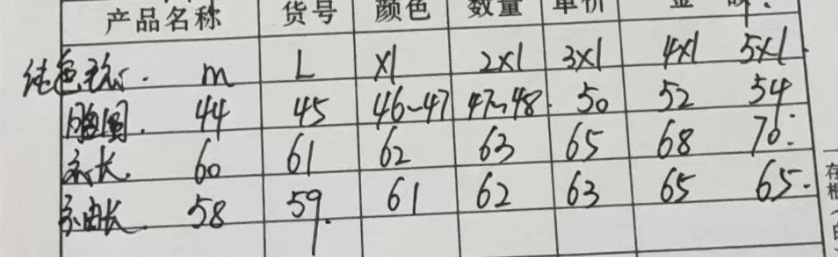 产品名称 货号 颜色 数量 单价 金 额
纯色 m L x1 2x1 3x1 4x1 5x1
胸围. 44 45 46~47 47~48. 50 52 54
衣长. 60 61 62 63 65 68 70.
衣由长. 58 59. 61 62 63 65 65.
存根